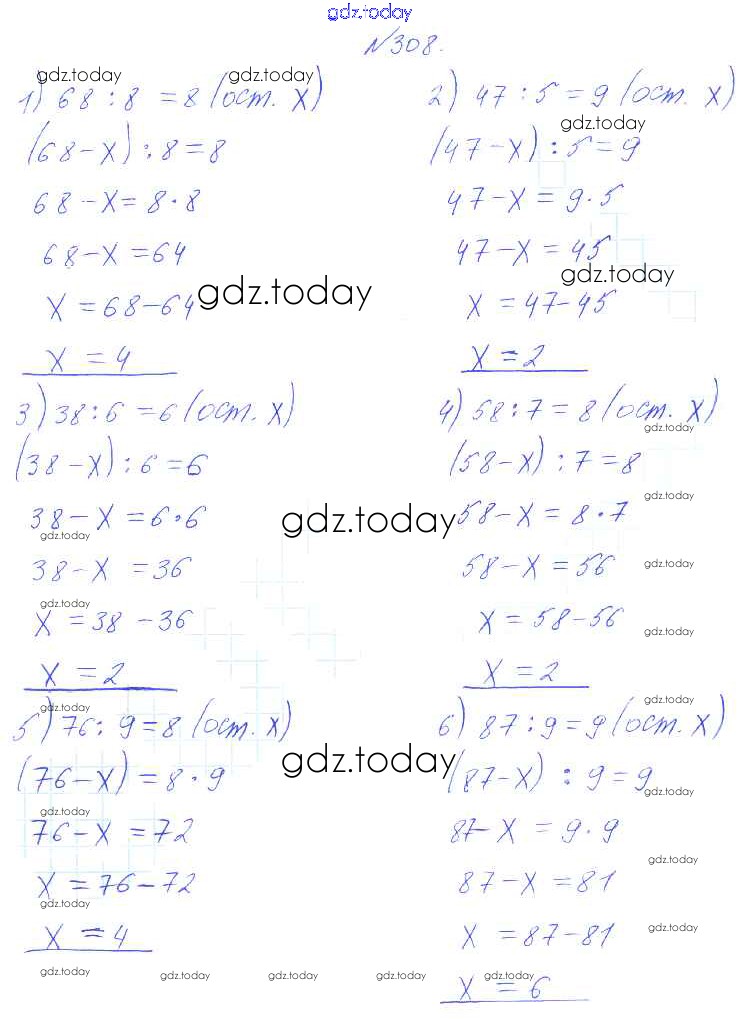 gdz.today
№308.
gdz.today gdz.today
1) 68 : 8 = 8 (ост. x)
(68 - x) : 8 = 8
68 - x = 8 · 8
68 - x = 64
x = 68 - 64
gdz.today
x = 4
2) 47 : 5 = 9 (ост. x)
gdz.today
(47 - x) : 5 = 9
47 - x = 9 · 5
47 - x = 45
gdz.today
x = 47 - 45
x = 2
3) 38 : 6 = 6 (ост. x)
(38 - x) : 6 = 6
38 - x = 6 · 6
gdz.today
gdz.today
38 - x = 36
gdz.today
x = 38 - 36
x = 2
4) 58 : 7 = 8 (ост. x)
gdz.today
(58 - x) : 7 = 8
gdz.today
58 - x = 8 · 7
58 - x = 56
gdz.today
x = 58 - 56
gdz.today
x = 2
5) 76 : 9 = 8 (ост. x)
(76 - x) = 8 · 9
gdz.today
gdz.today
76 - x = 72
x = 76 - 72
gdz.today
x = 4
gdz.today
6) 87 : 9 = 9 (ост. x)
(87 - x) : 9 = 9
gdz.today
87 - x = 9 · 9
gdz.today
87 - x = 81
x = 87 - 81
gdz.today
x = 6
gdz.today gdz.today gdz.today gdz.today gdz.today